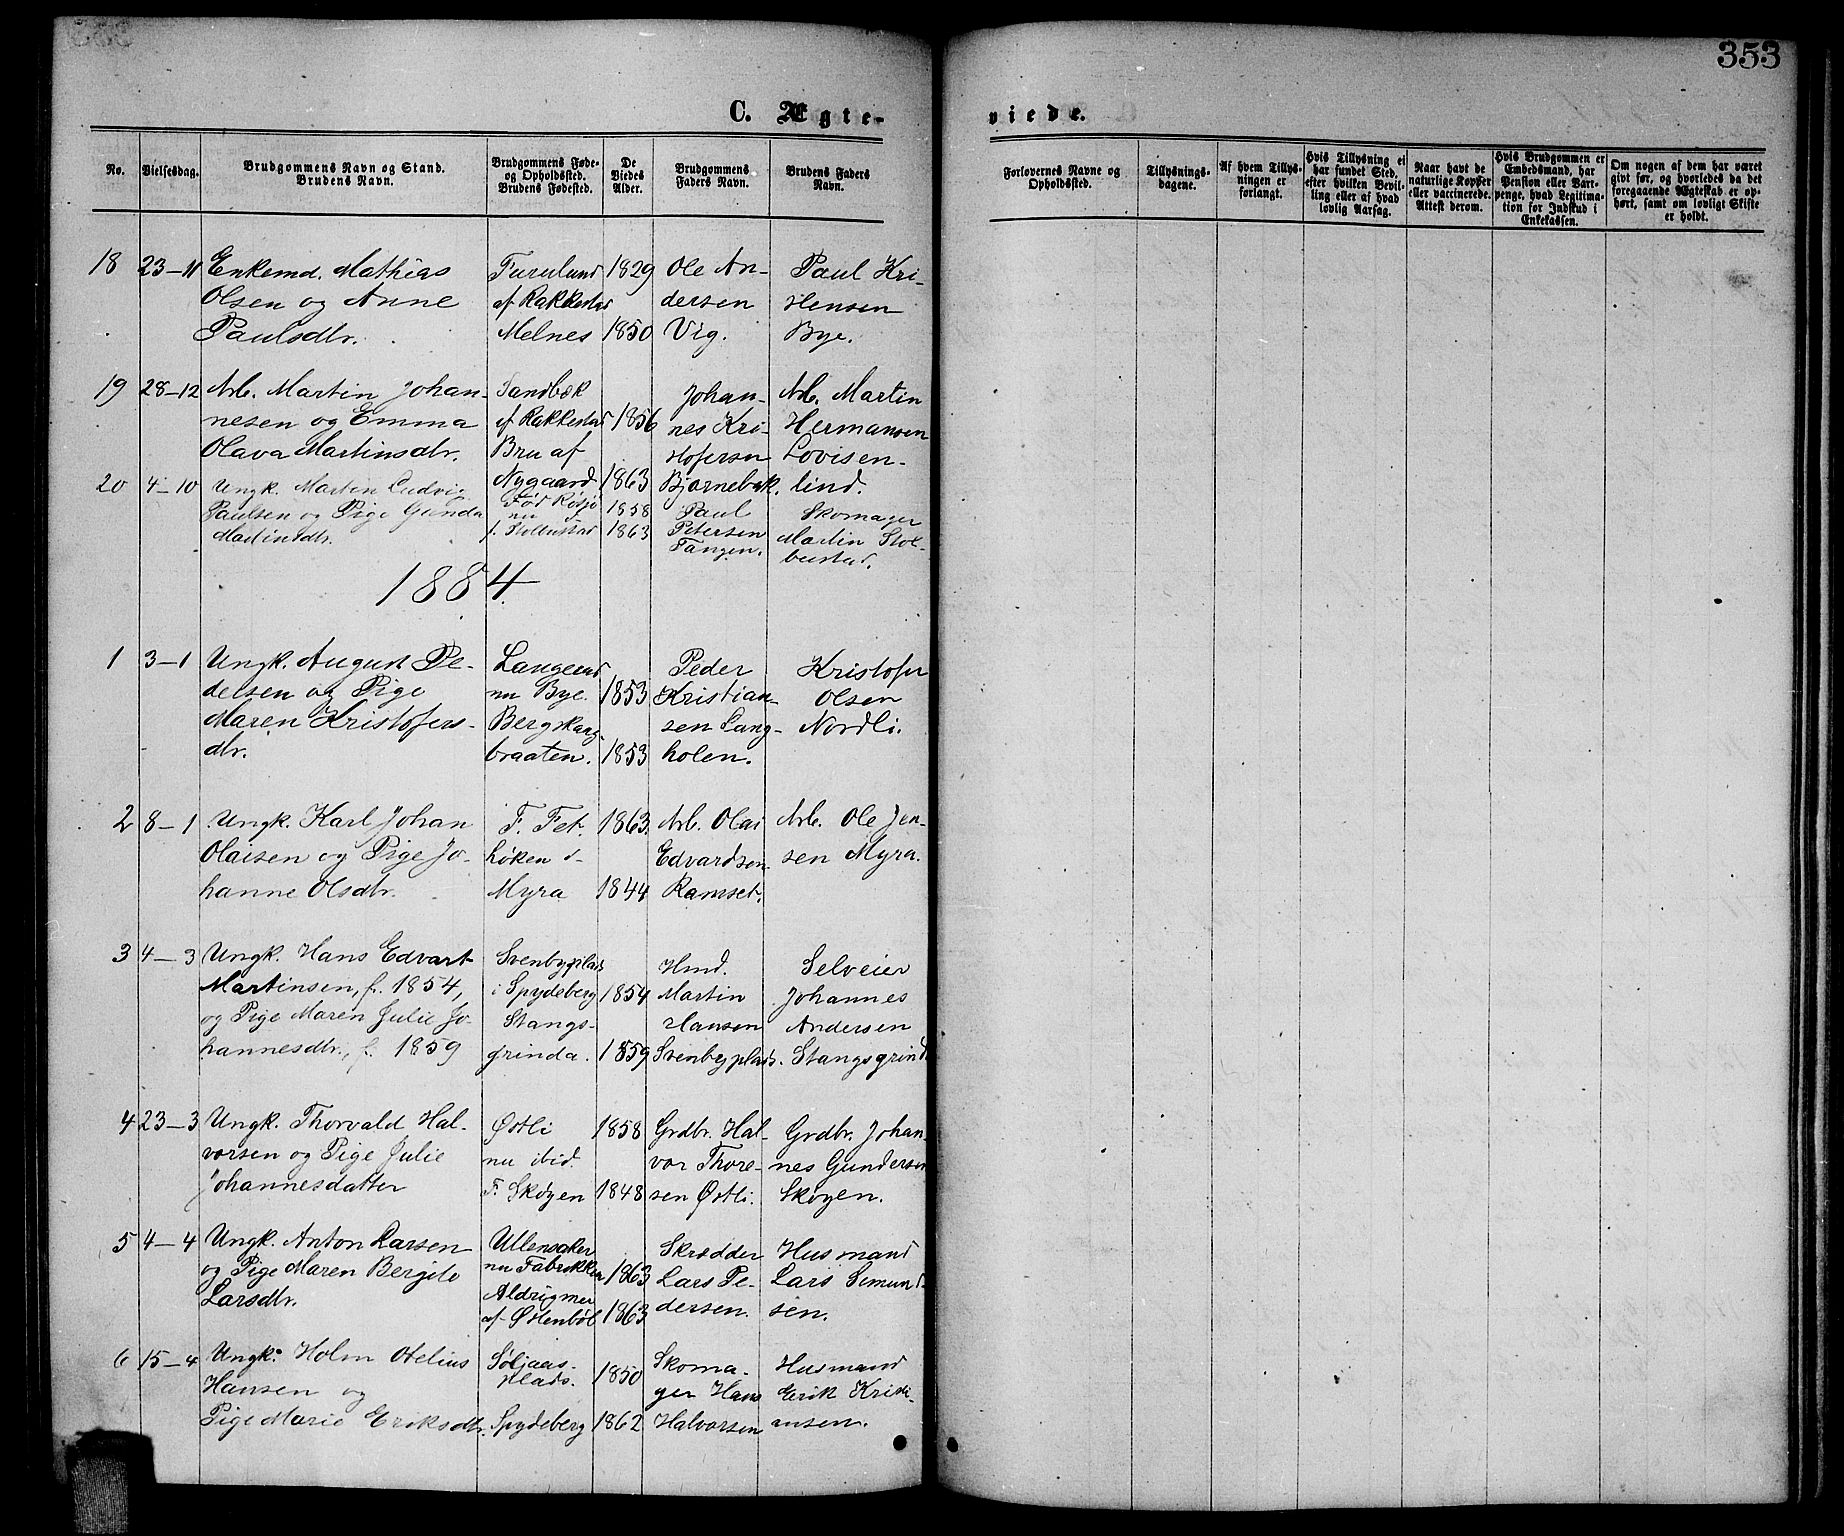 353
C. Ægte-
viede.
No.
Vielsesdag.
Brudgommens Navn og Stand.
Brudens Navn.
Brudgommens Føde-
og Opholdssted.
Brudens Fødested.
De
Viedes
Alder.
Brudgommens
Faders Navn.
Brudens Faders
Navn.
Forlovernes Navne og
Opholdssted.
Tillysnings-
dagene.
Af hvem Tillys-
ningen er
forlangt.
Hvis Tillysning ei
har fundet Sted,
efter hvilken Bevil-
ling eller af hvad
lovlig Aarsag.
Naar havt de
naturlige Kopper
eller vaccinerede.
Attest derom.
Hvis Brudgommen er
Embedsmand, har
Pension eller Vart-
penge, hvad Legitima-
tion for Indskud i
Enkekassen.
Om nogen af dem har været
givt før, og hvorledes da det
foregaaende Ægteskab er op-
hørt, samt om lovligt Skifte
er holdt.
18 23-11 Enkemd. Mathias
Olsen og Anne
Paulsdtr.
Furulund
af Rakkestad
Melnes
1829
1850
Ole An-
dersen
Vig.
Paul Kri-
stensen
Bye.
19 28-12 Arb. Martin Johan-
nesen og Emma
Olava Martinsdtr.
Sandbæk
af Rakkestad
Bru af
Nygaard
1856
1863
Johan-
nes Kri-
stofersen
Bjørnebæk.
Arb. Martin
Hermansen
Lovisen-
lind.
20 4-10 Ungk. Martin Ludvig
Paulsen og Pige Gunda
Martinsdtr.
Fød Røsjø
nu
f. Stolbustad
1858
1863
Paul
Petersen
Tangen.
Skomager
Martin Stol-
bustad.
1884
1 3-1 Ungk. August Pe-
dersen og Pige
Maren Kristofers-
dtr.
Langerud
nu Bye.
Berg
braaten.
1853
1853
Peder
Kristian-
sen Lang-
holen.
Kristofer
Olsen
Nordli.
2 8-1 Ungk. Karl Johan
Olaisen og Pige Jo-
hanne Olsdtr.
F. Fet.
høken d-
Myra
1863.
1844
Arb. Olai
Edvardsen
Ramset.
Arb. Ole Jen-
sen Myra.
3 4-3 Ungk. Hans Edvart
Martinsen, f. 1854,
og Pige Maren Julie Jo-
hannesdtr., f. 1859
Svenbyplads
i Spydeberg
Stangs-
grinda.
1854
1859
Hmd.
Martin
Hansen
Svenbyplads.
Selveier
Johannes
Andersen
Stangsgrind
4 23-3 Ungk. Thorvald Hal-
vorsen og Pige Julie
Johannesdatter
Østli
nu ibid.
F. Skøyen
1858
1848
Grdbr. Hal-
vor Thore-
sen Østli.
Grdbr. Johan-
nes Gundersen
Skøyen.
5 4-4 Ungk. Anton Larsen
og Pige Maren Bergite
Larsdtr.
Ullensaker
nu Fabrikken
Aldrigmer
af Østenbøl
1863
1863
Skrædder
Lars Pe-
dersen.
Husmand
Lars Simund-
sen.
6 15-4 Ungk. Holm Otelius
Hansen og
Pige Marie Eriksdtr.
Søljaas-
plads.
Spydeberg
1850
1862
Skoma-
ger Hans
Halvorsen
Husmand
Erik Kristi-
ansen.